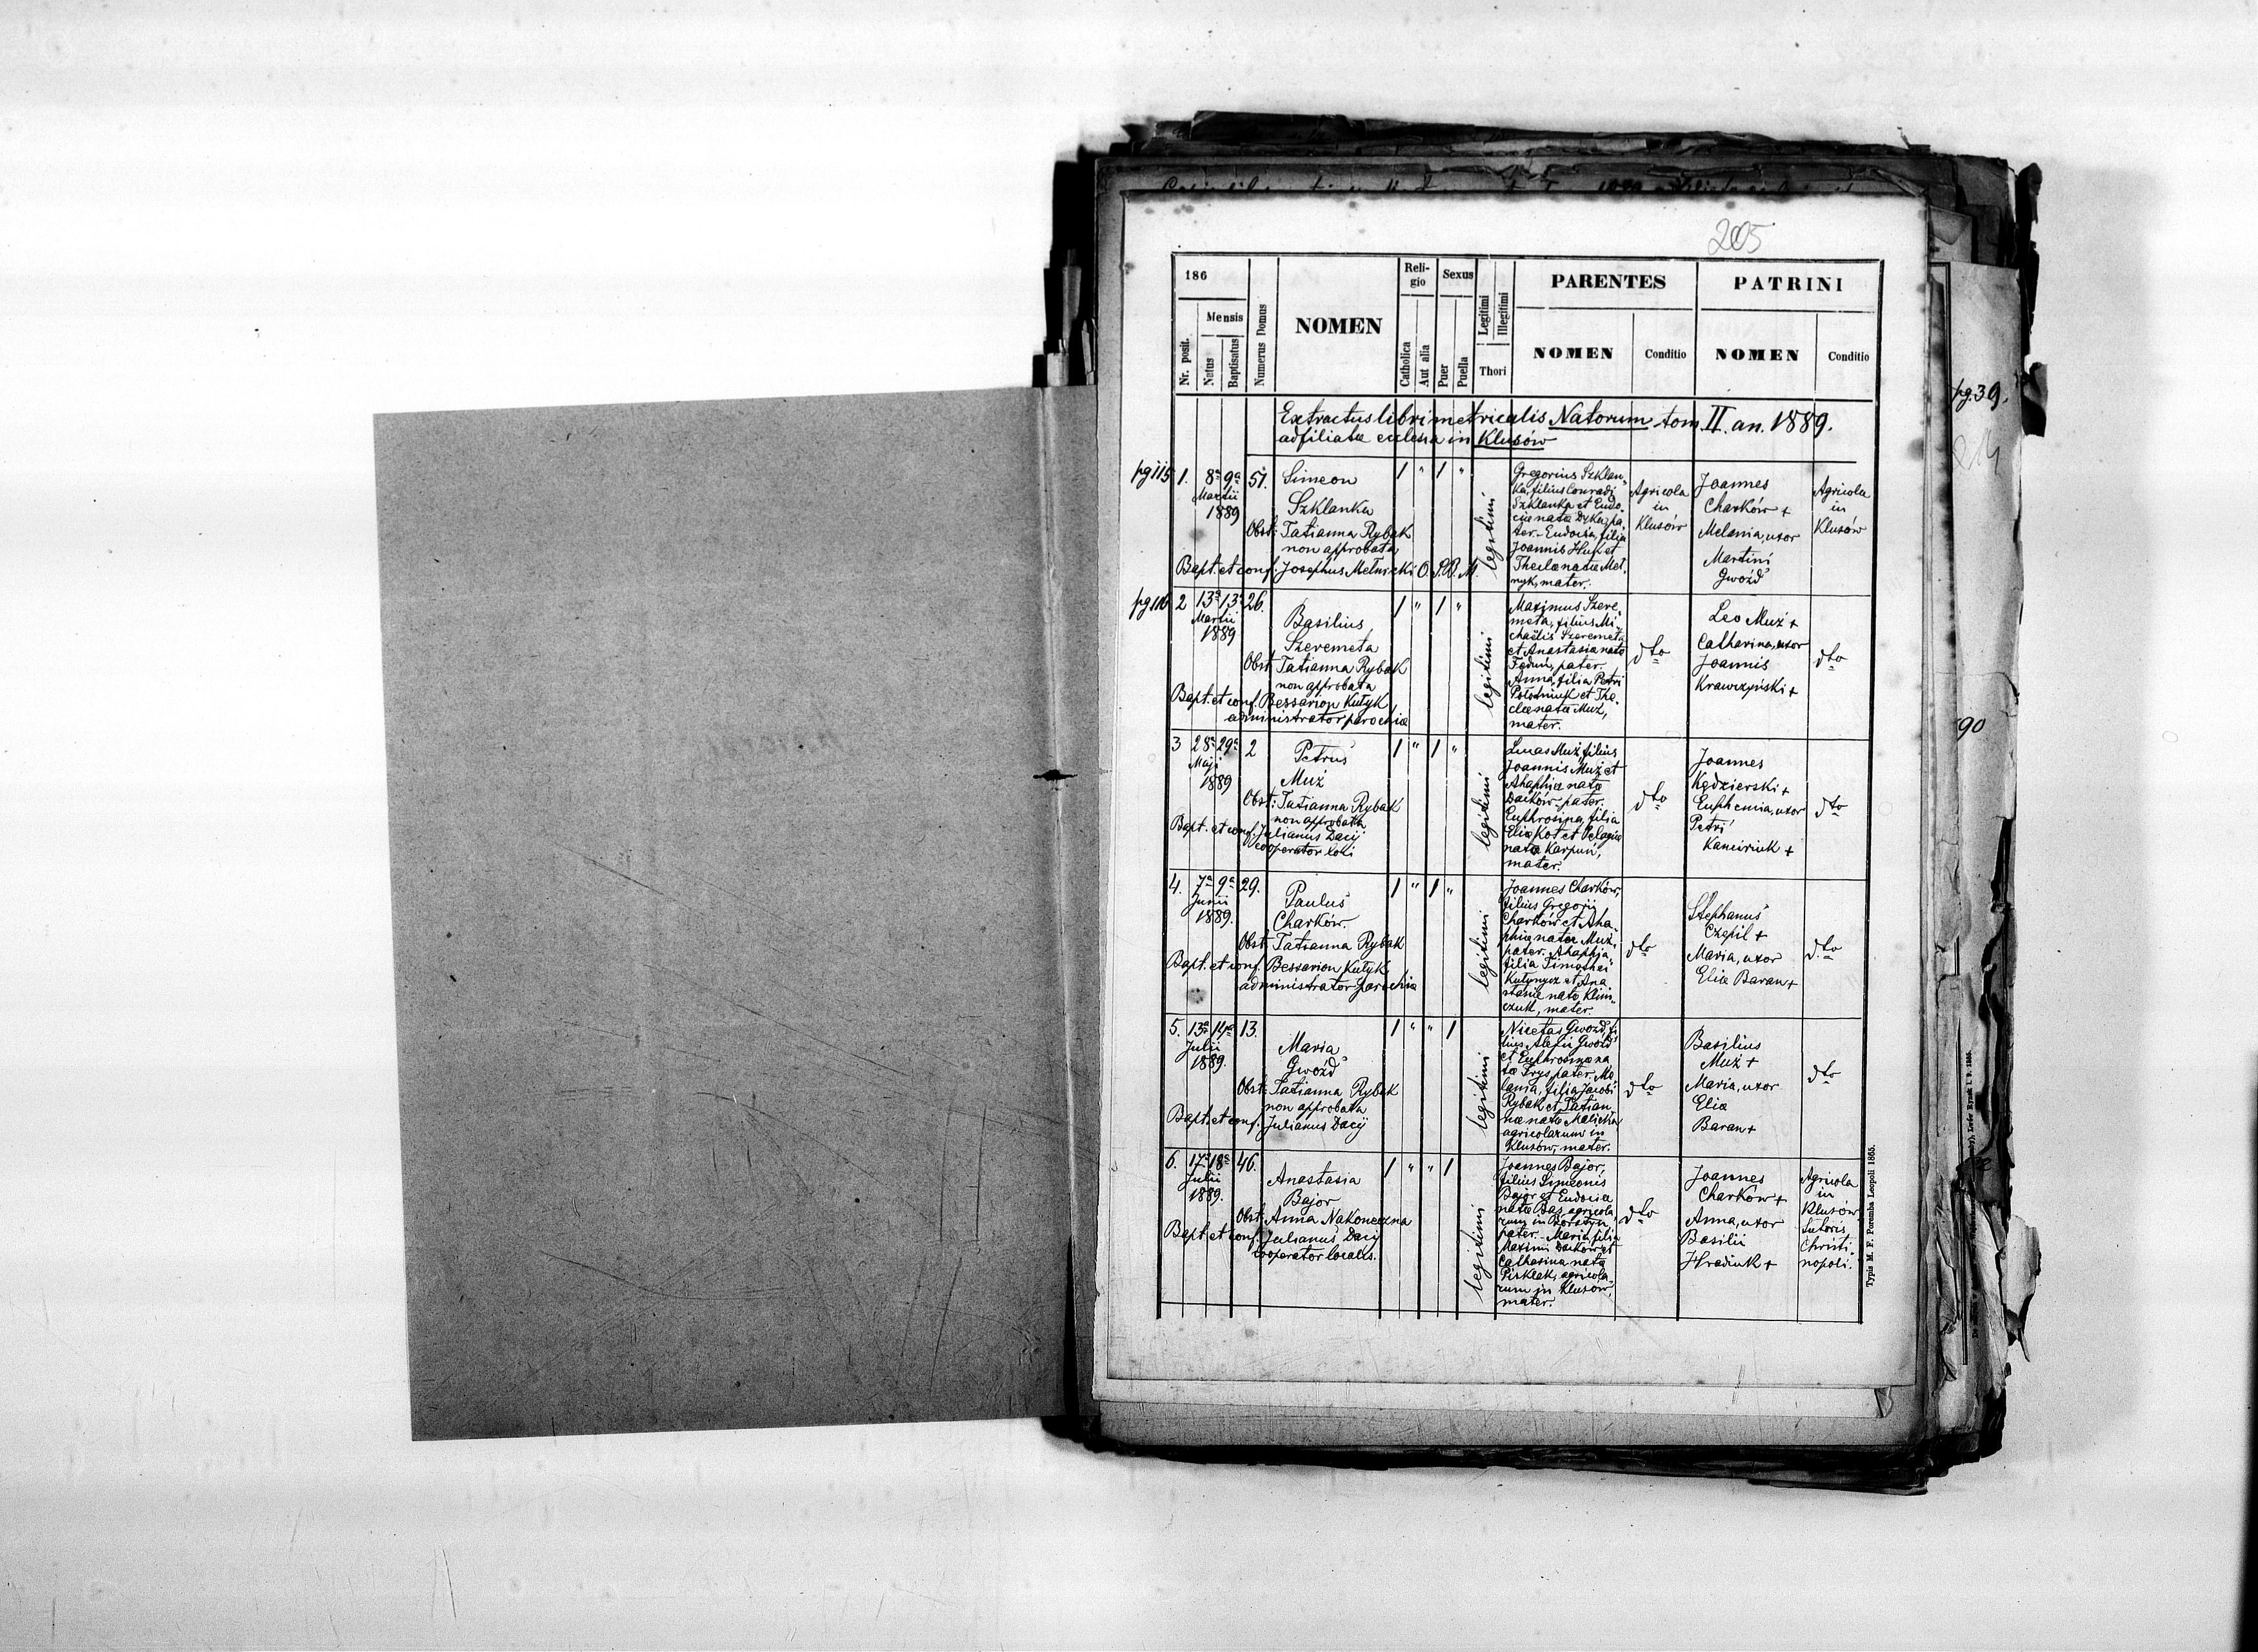 205
186
Mensis
Nr. posit.
Natus
Baptisatus
Numerus Domus
NOMEN
Reli-
gio
Catholica
Aut alia
Sexus
Puer
Puella
Legitimi
Illegitimi
Thori
PARENTES
NOMEN
Conditio
PATRINI
NOMEN
Conditio
Extractus libri metricalis Natorum tom. II. an. 1889.
adfiliatæ eclesia in Klusów
pg 115
1.
8ª 9ª
Martii
1889
51.
Simeon
Szklanka
Obst: Tatianna Rybak
non approbata
Bapt. et conf. Josephus Metnicki O. S. B. M.
1 " 1 "
legitimi
Gregorius Szklan-
ka, filius Conradi
Szklanka et Eudo-
ciæ nata Dyka, pa-
ter. Eudocia, filia
Joannis Huk et
Theclæ natæ Met-
nyk, mater.
Agricola
in
Klusów
Joannes
Charków +
Melania, uxor
Martini
Gwózd
Agricola
in
Klusów
pg 116
2
13ª 13ª
Martii
1889
26.
Basilius
Szeremeta
Obst Tatianna Rybak
non approbata
Bapt. et conf. Bessarion Kutyk
administrator parochiæ
1 " 1 "
legitimi
Maximus Szere-
meta, filius Mi-
chaëlis Szeremeta
et Anastasia nata
pater.
Anna, filia Petri
et The-
clæ natæ Muź,
mater.
dto
Leo Muź +
Catharina, uxor
Joannis
Krawczyński +
dto
3
28ª 29ª
Maji
1889
2
Petrus
Muź
Obst: Tatianna Rybak
non approbata
Bapt. et conf. Julianus Dacij
cooperator loci
1 " 1 "
legitimi
Lucas Muź filius
Joannis Muź et
Ahaphiæ natæ
Daćków pater.
Euphrosina, filia
Eliæ Kot et Pelagiæ
natæ Karpuń,
mater.
dto
Joannes
Kędzierski +
Euphemia, uxor
Petri
+
dto
4.
7ª 9ª
Junii
1889.
29.
Paulus
Charków.
Obst: Tatianna Rybak
Bapt. et conf. Bessarion Kutyk
administrator parochiæ
1 " 1 "
legitimi
Joannes Charków,
filius Gregorij
Charków et Aha-
phiæ natæ Muź,
pater. Ahaphja
filia Timothei
et Ana
stasiæ nata Klim-
czuk, mater.
dto
Stephanus
Czepil +
Maria, uxor
Eliæ Baran +
dto
5.
13ª 14ª
Julii
1889.
13.
Maria
Gwózd
Obst: Tatianna Rybak
non approbata
Bapt. et conf. Julianus Dacij
1 " " 1
legitimi
Nicetas Gwozd, fi-
lius Alexii Gwózd
et Euphrosinæ na
tæ Hrys pater. Me-
lania, filia Jacobi
Rybak et Tatian-
næ natæ Malicka
agricolarum in
Klusów, mater.
dto
Basilius
Muź +
Maria, uxor
Eliæ
Baran +
dto
6.
17ª 18ª
Julii
1889.
46.
Anastasia
Bajor
Obst: Anna Nakoneczna
Bapt. et conf. Julianus Dacij
cooperator localis.
1 " " 1
legitimi
Joannes Bajor,
filius Simeonis
Bajor et Eudociæ
natæ Bas agricola
rum in
pater. Maria, filia
Maximi Daćków et
Catharina nata
agricola-
rum in Klusów,
mater.
dto
Joannes
Charków +
Anna, uxor
Basilii
Hrediuk +
Agricola
in
Klusów
Sutoris
Christi-
nopoli.
Typis M. F. Poremba Leopoli 1865.
pg. 39.
90